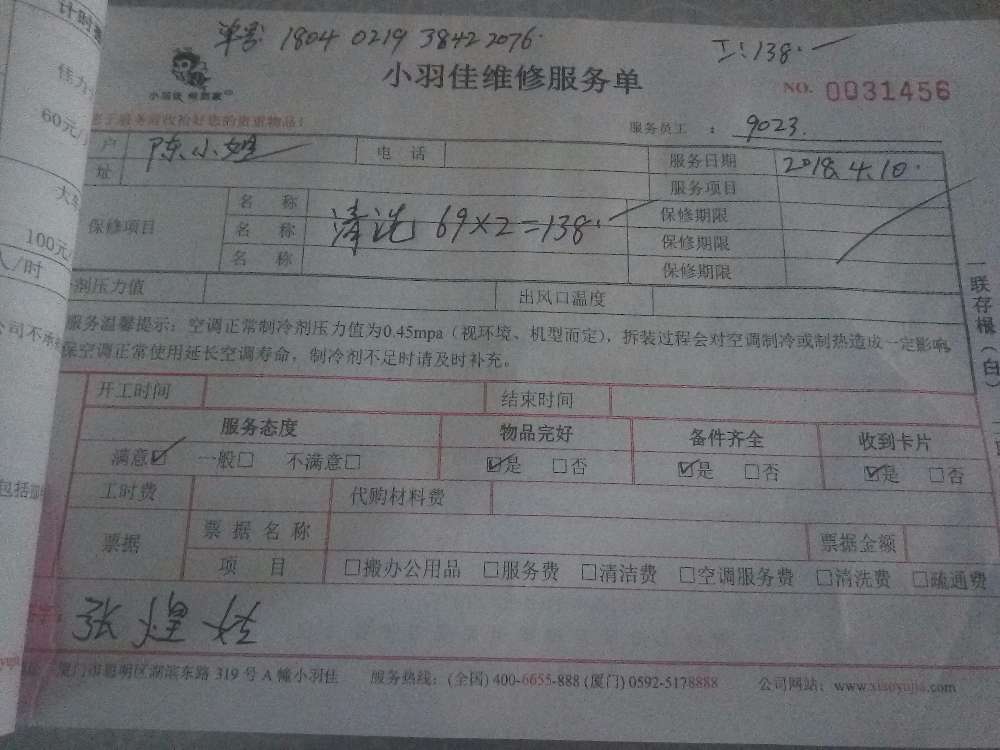 单号: 1804 0219 3842 2076.
工: 138.
小羽佳维修服务单
NO. 0031456
小羽佳
服务员工 : 9023.
户 陈小姐 电 话 服务日期 2018.4.10.
址 服务项目
保修项目 名 称 保修期限
名 称 清洗 69×2=138. 保修期限
名 称 保修期限
剂压力值 出风口温度
服务温馨提示:空调正常制冷剂压力值为0.45mpa(视环境、机型而定),拆装过程会对空调制冷或制热造成一定影响,
保空调正常使用延长空调寿命,制冷剂不足时请及时补充。
开工时间 结束时间
服务态度 物品完好 备件齐全 收到卡片
满意☑ 一般□ 不满意□ ☑是 □否 ☑是 □否 ☑是 □否
工时费 代购材料费
票据 票据名称 票据金额
项 目 □搬办公用品 □服务费 □清洁费 □空调服务费 □清洗费 □疏通费
厦门市思明区湖滨东路 319 号 A 幢小羽佳 服务热线:(全国) 400-6655-888 (厦门) 0592-5178888 公司网站:www.xiaoyujia.com
一联存根(白)
计时
佳力
60元/
大
100元/
人/时
公司不承
包括